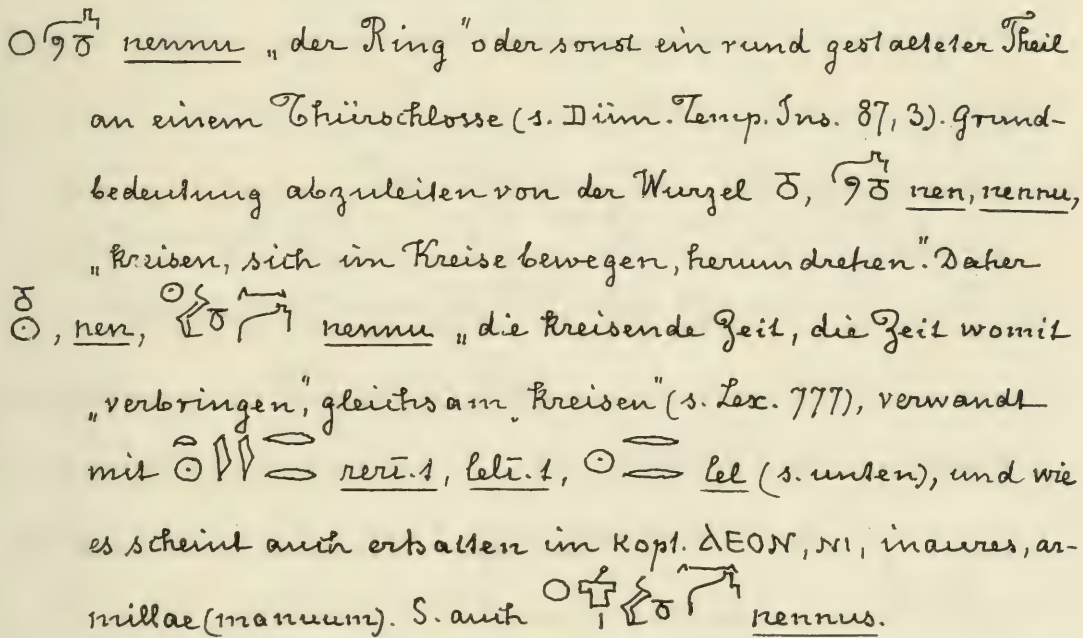 nennu „der Ring" oder sonst ein rund gestalteter Theil
an einem Thürschlosse (s. Düm. Temp. Ins. 87, 3). Grund-
bedeutung abzuleiten von der Wurzel , nen, nennu,
„kreisen, sich im Kreise bewegen, herumdrehen". Daher
, nen, nennu „die kreisende Zeit, die Zeit womit
„verbringen," gleichsam „kreisen" (s. Lex. 777), verwandt
mit rerī.t, lelī.t, lel (s. unten), und wie
es scheint auch erhalten im Kopt. ⲗEON, NI, inaures, ar-
millae (manuum). S. auch nennus.